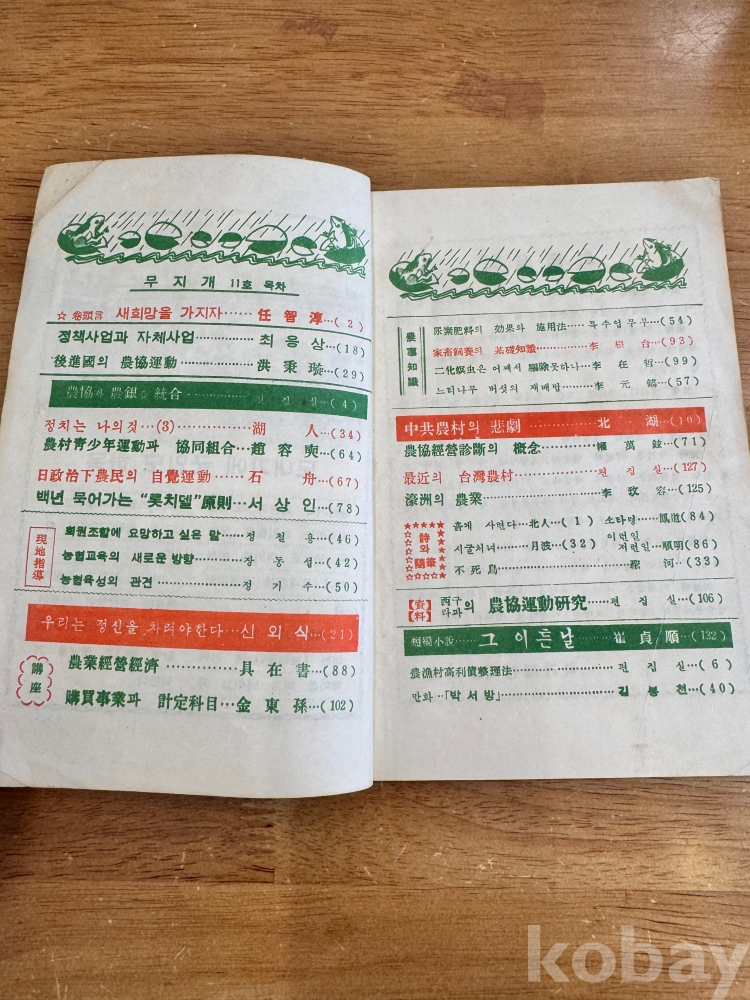 무지개 11호 목차
☆ 卷頭言 새희망을 가지자……任智淳…(2)
정책사업과 자체사업……………최응상…(18)
後進國의 農協運動……………洪秉璇…(29)
農協과 農銀을 統合……………편집실…(4)
정치는 나의것…(3)……………湖人…(34)
農村靑少年運動과 協同組合…趙容奭…(64)
日政治下農民의 自覺運動……石舟…(67)
백년 묵어가는 "롯치델"原則…서상인…(78)
現地指導
회원조합에 요망하고 싶은 말……정철용…(46)
농협교육의 새로운 방향……장동섭…(42)
농협육성의 관견……정기수…(50)
우리는 정신을 차려야한다…신외식…(21)
講座
農業經營經濟……………具在書…(88)
購買事業과 計定科目…金東孫…(102)
農事知識
尿素肥料의 効果와 施用法……특수업무부…(54)
家畜飼養의 基礎知識……………李根台…(93)
二化螟虫은 어째서 驅除못하나…李在哲…(99)
느티나무 버섯의 재배법……李元銘…(57)
中共農村의 悲劇……………北湖…(10)
農協經營診斷의 概念……………權萬鉉…(71)
最近의 台灣農村……………편집실…(127)
濠洲의 農業……………李孜容…(125)
詩와 隨筆
흙에 사련다…北人…(1) 소타령…鳳道(84)
시굴처녀…月波…(32) 이런일 저런일…順明(86)
不死鳥……………聖河…(33)
【資料】 西구라파의 農協運動硏究……편집실…(106)
短篇小說…… 그 이튿날 ……崔貞順…(132)
農漁村高利債整理法……………편집실…(6)
만화…「박서방」……………길봉천…(40)
kobay